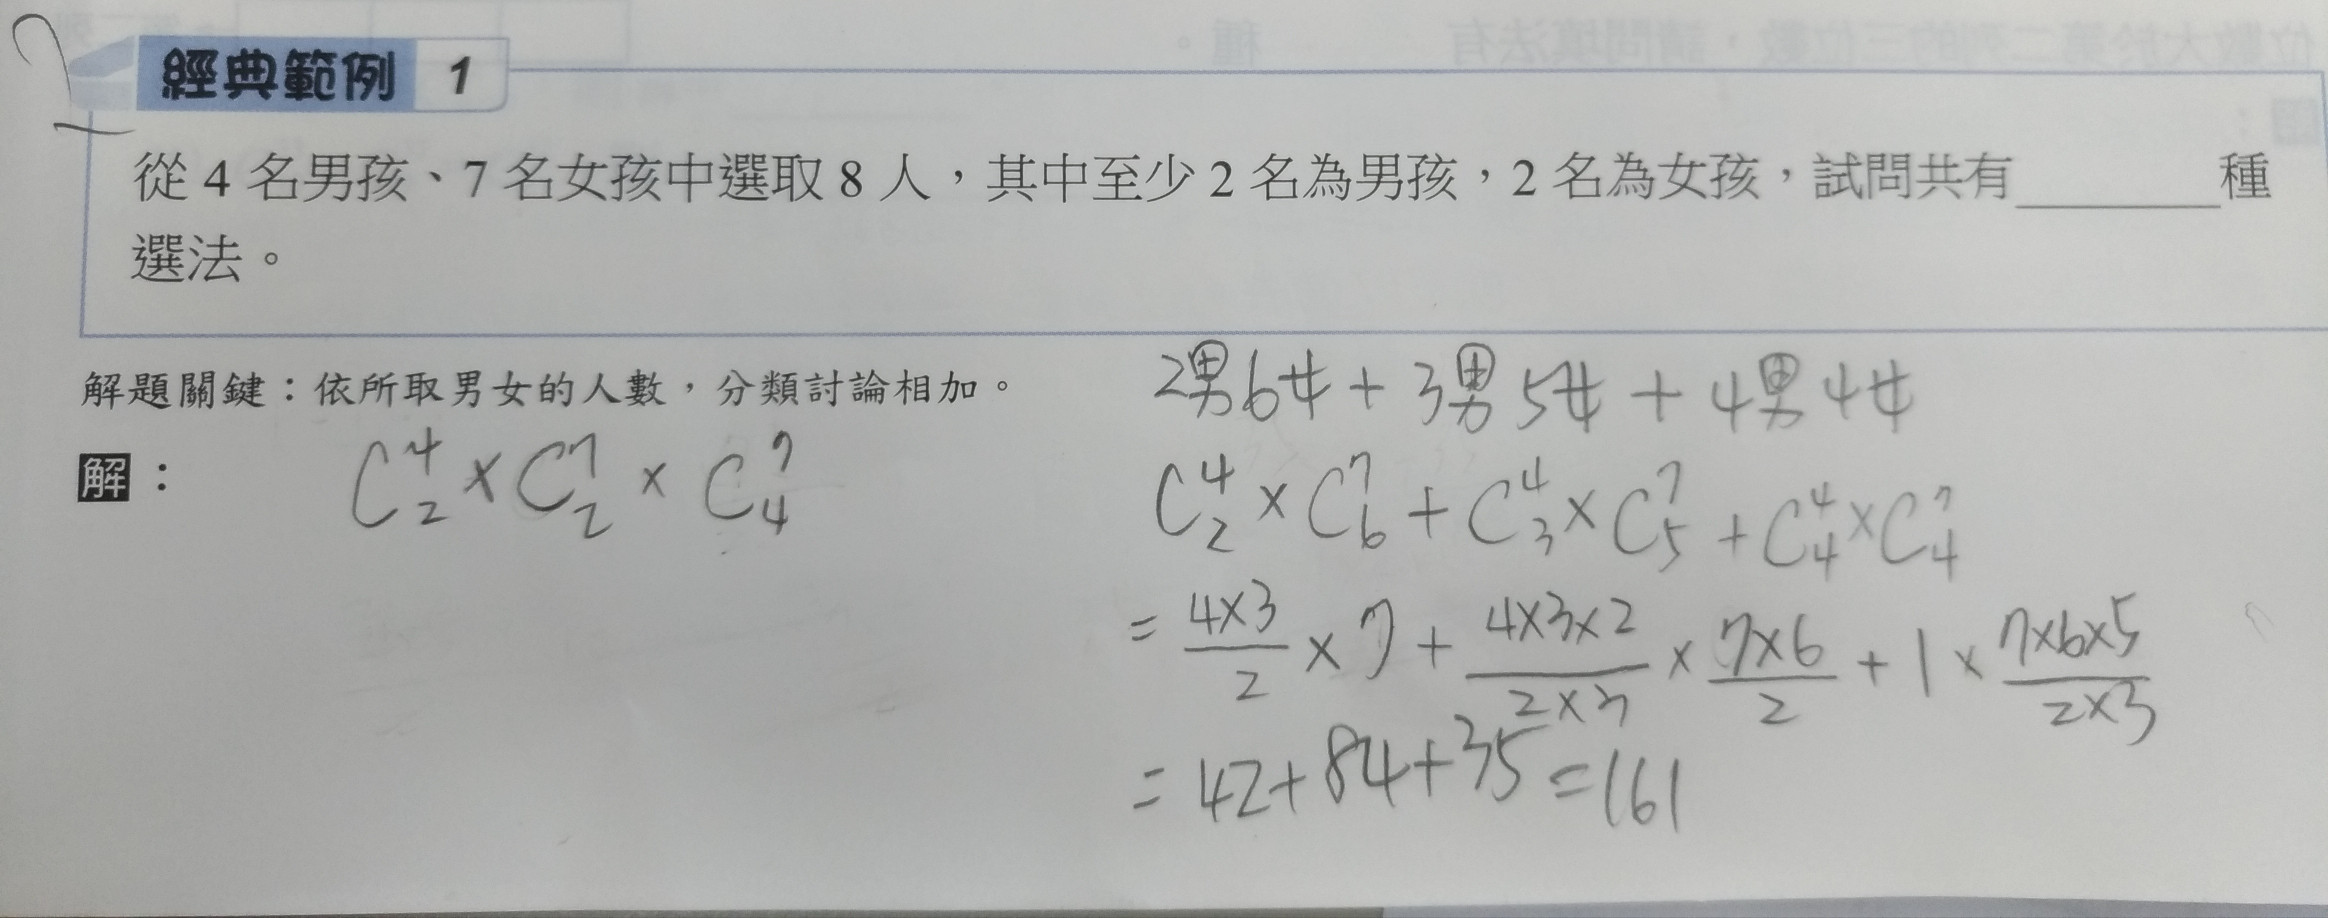 經典範例 1
從 4 名男孩、7 名女孩中選取 8 人，其中至少 2 名為男孩，2 名為女孩，試問共有________種
選法。
解題關鍵：依所取男女的人數，分類討論相加。
解：
C⁴₂ × C⁷₂ × C⁷₄
2男6女 + 3男5女 + 4男4女
C⁴₂ × C⁷₆ + C⁴₃ × C⁷₅ + C⁴₄ × C⁷₄
= 4×3/2 × 7 + 4×3×2/2×3 × 7×6/2 + 1 × 7×6×5/2×3
= 42 + 84 + 35 = 161